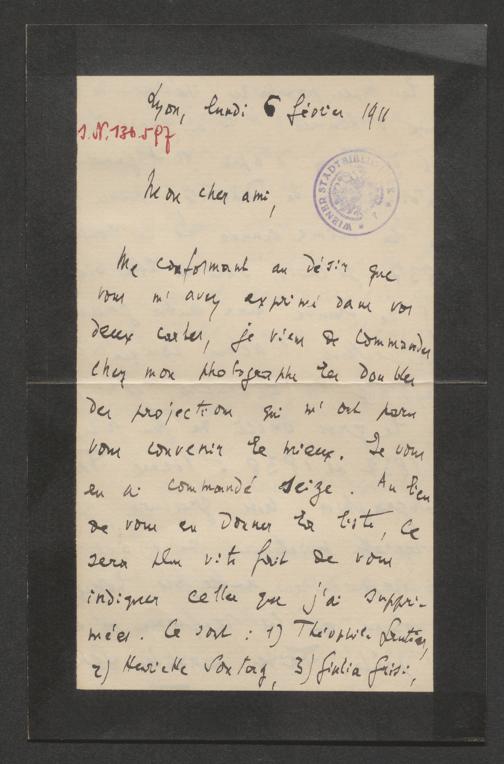 Lyon, lundi 6 février 1911
I.N. 136.597
WIENER STADTBIBLIOTHEK
Mon cher ami,
Me conformant au désir que
vous m'avez exprimé dans vos
deux cartes, je viens de commander
chez mon photographe les doubles
des projections qui m'ont paru
vous convenir le mieux. Je vous
en ai commandé seize. Au lieu
de vous en donner la liste, ce
sera plus vite fait de vous
indiquer celles que j'ai suppri-
mées. Ce sont : 1) Théophile Gautier,
2) Henriette Sontag, 3) Giulia Grisi,